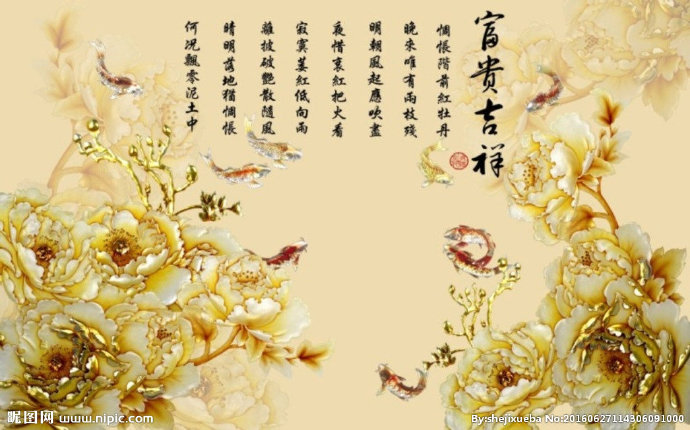 富貴吉祥
惆悵階前紅牡丹
晚來唯有兩枝殘
明朝風起應吹盡
夜惜衰紅把火看
寂寞萎紅低向雨
離披破艷散隨風
晴明落地猶惆悵
何況飄零泥土中
昵图网 www.nipic.com
By:shejixueba No:20160627114306091000